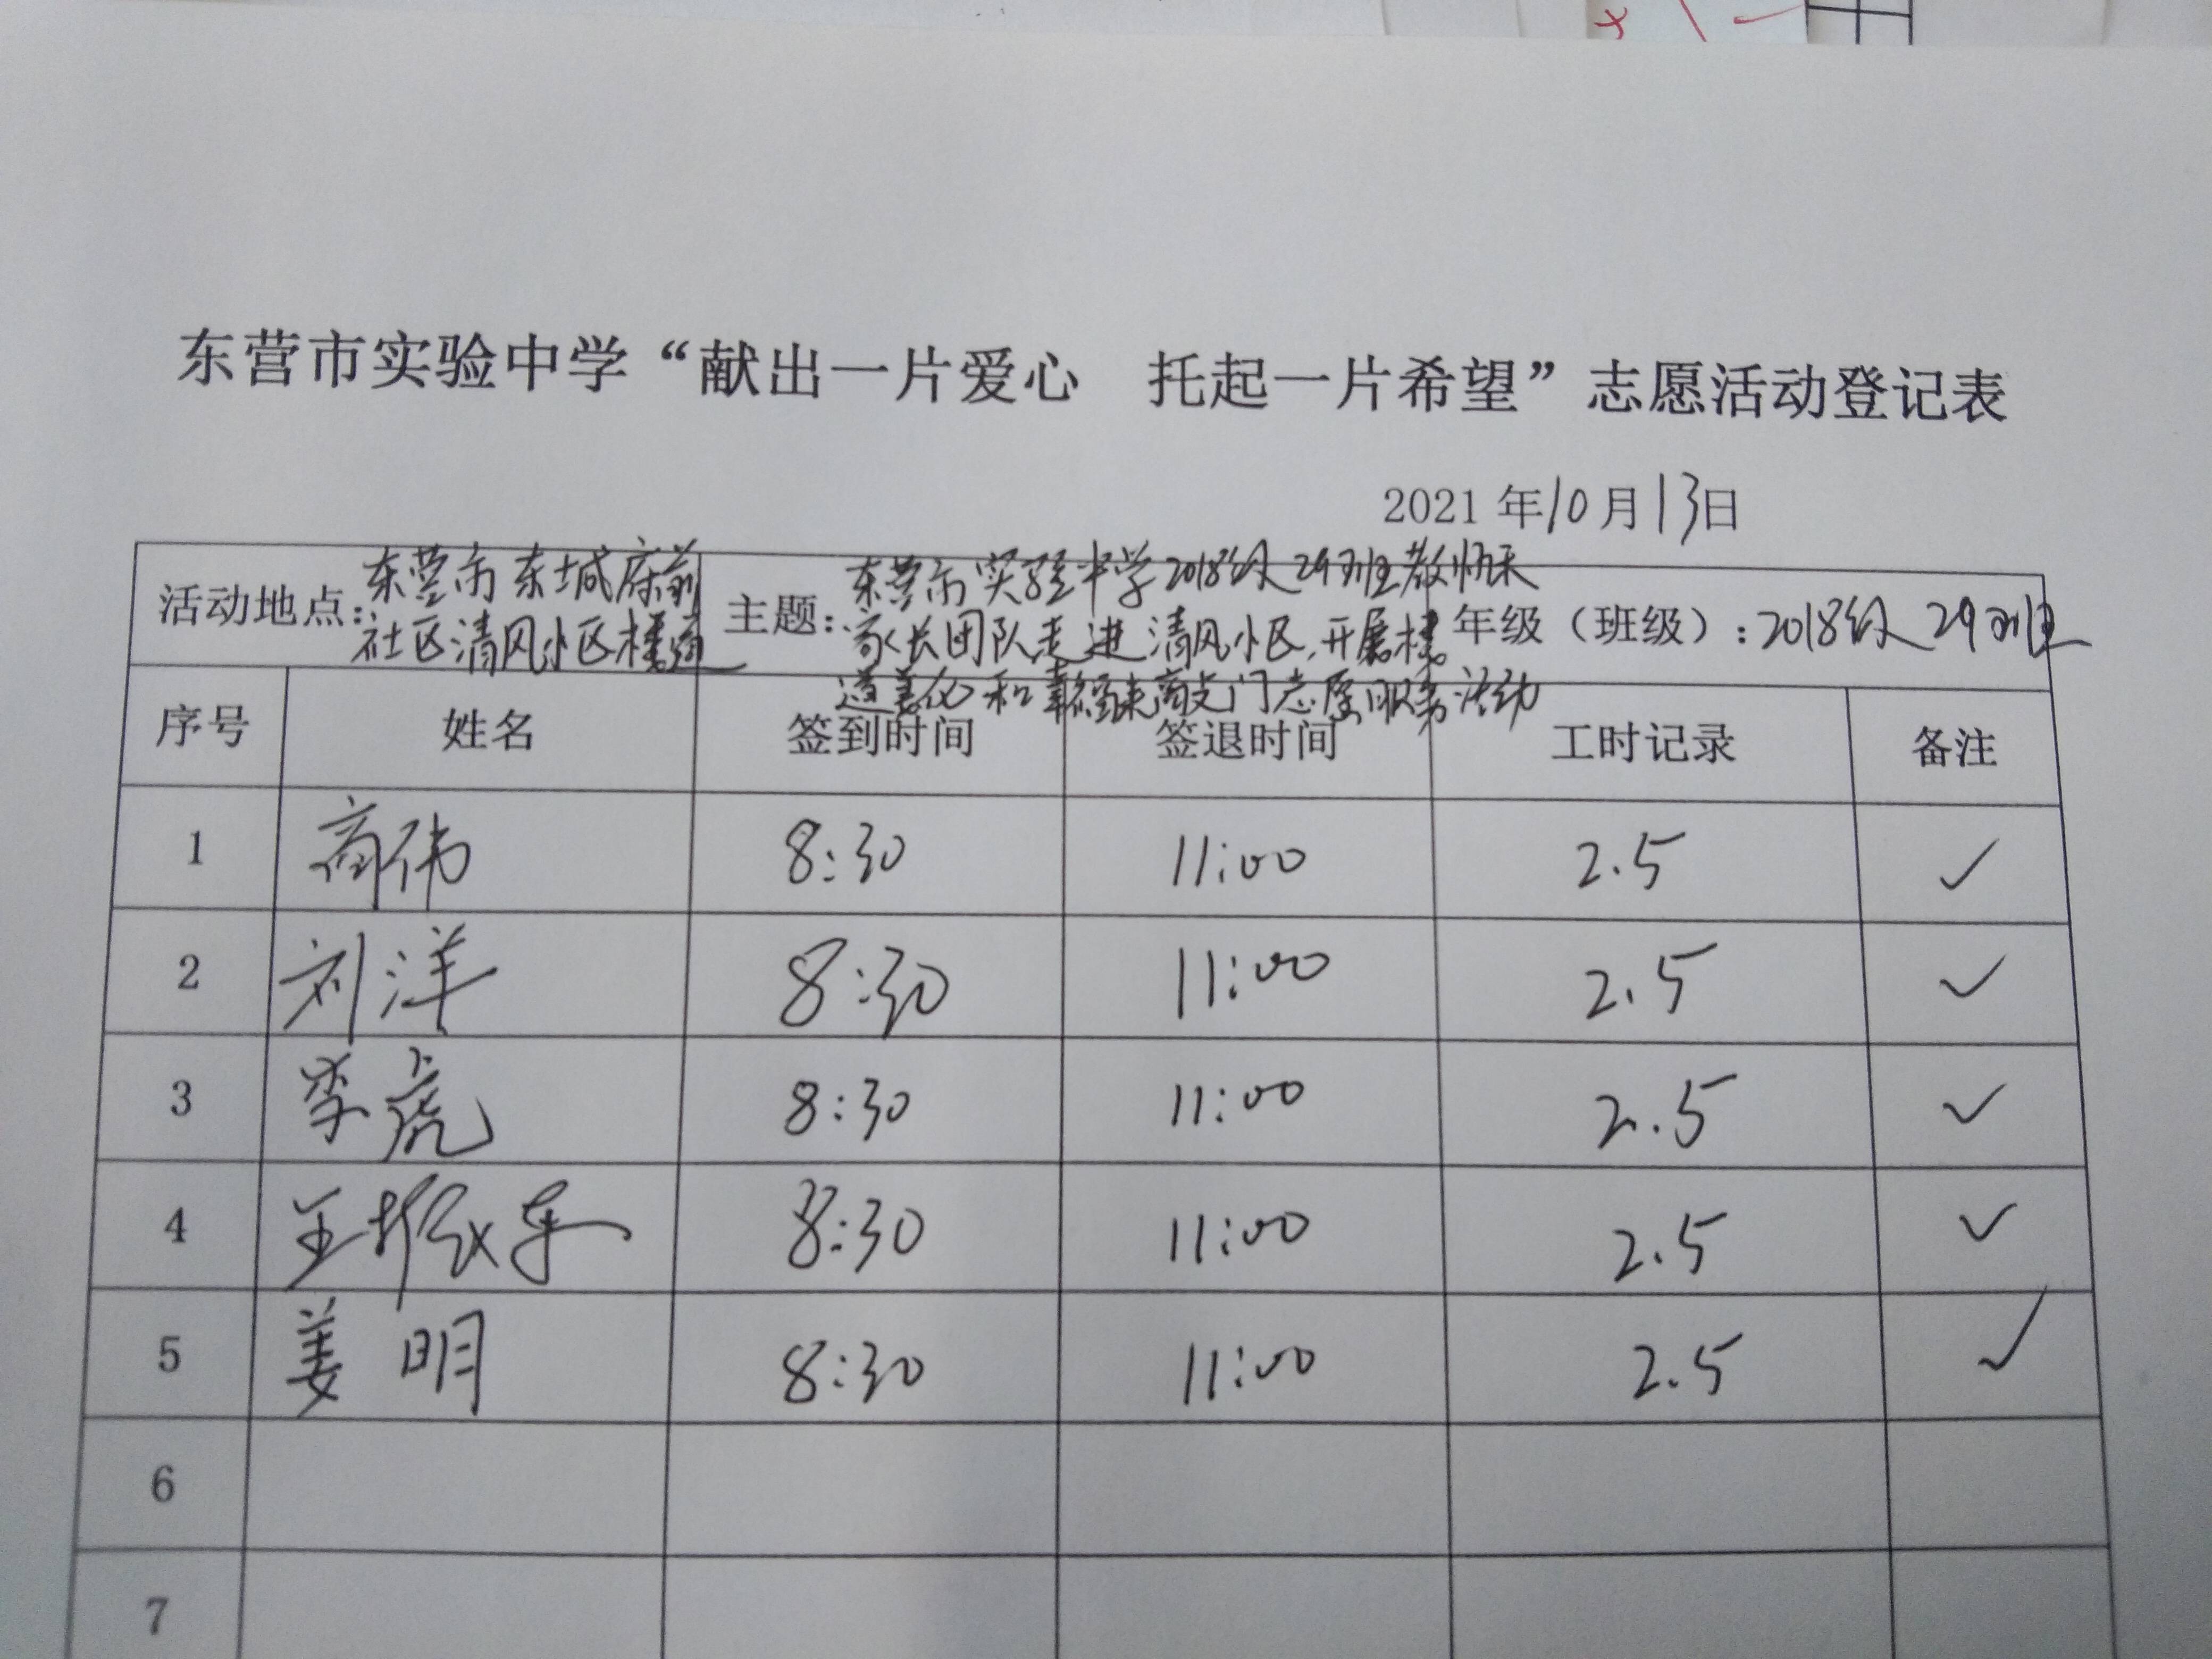 东营市实验中学“献出一片爱心 托起一片希望”志愿活动登记表
2021 年10月13日
活动地点：东营市东城府前
社区清风小区楼道
主题：东营市实验中学2018级29班教师和
家长团队走进清风小区，开展楼
道美化和幸福来敲门志愿服务活动
年级（班级）：2018级29班
序号 姓名 签到时间 签退时间 工时记录 备注
1 商伟 8:30 11:00 2.5 ✓
2 刘洋 8:30 11:00 2.5 ✓
3 李虎 8:30 11:00 2.5 ✓
4 王振军 8:30 11:00 2.5 ✓
5 姜明 8:30 11:00 2.5 ✓
6
7